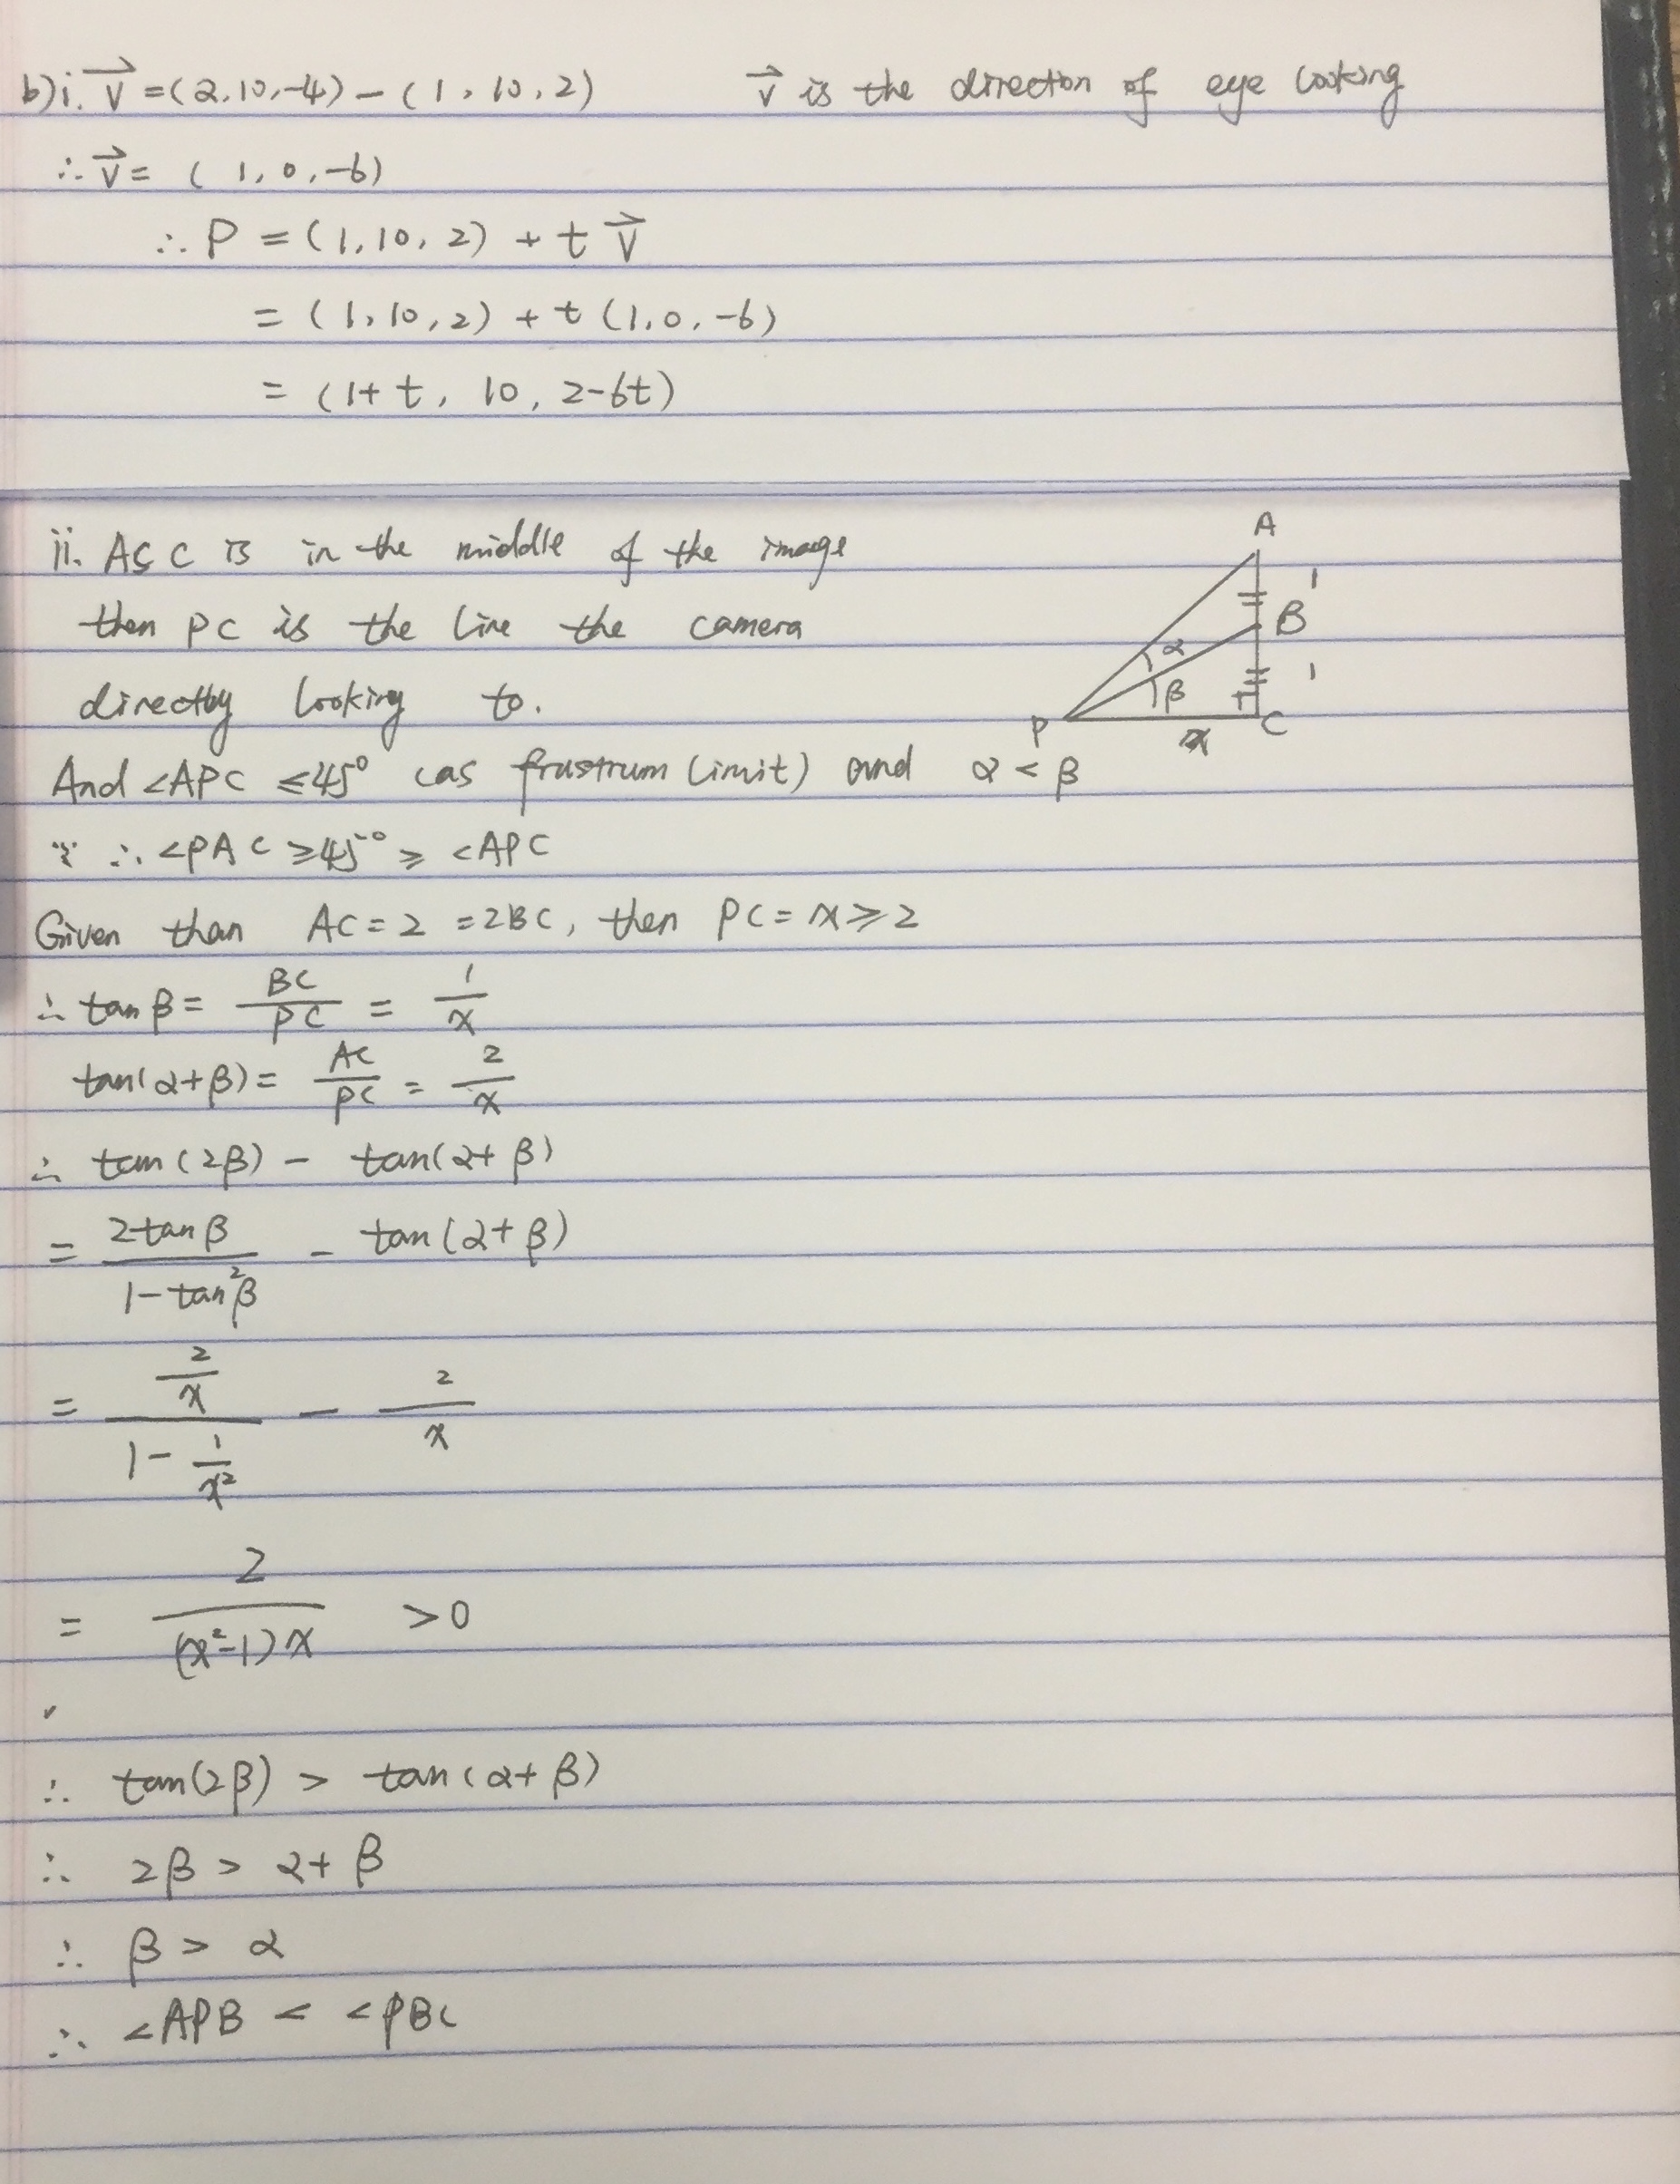 b) i. v⃗ = (2, 10, -4) - (1, 10, 2) v⃗ is the direction of eye looking
∴ v⃗ = ( 1, 0, -6)
∴ P = (1, 10, 2) + t v⃗
= (1, 10, 2) + t (1, 0, -6)
= (1+t, 10, 2-6t)
ii. AS C is in the middle of the image
then PC is the line the camera
directly looking to.
A
1
B
1
α
β
P
x
C
And <APC ≤45° (as frustrum limit) and α < β
∴ <PAC ≥45° ≥ <APC
Given than AC = 2 = 2BC, then PC = x ≥ 2
∴ tan β = BC/PC = 1/x
tan(α+β) = AC/PC = 2/x
∴ tan(2β) - tan(α+β)
= 2tan β/(1-tan²β) - tan(α+β)
= (2/x)/(1 - 1/x²) - 2/x
= 2/((x²-1)x) >0
∴ tan(2β) > tan(α+β)
∴ 2β > α+β
∴ β > α
∴ <APB < <PBC